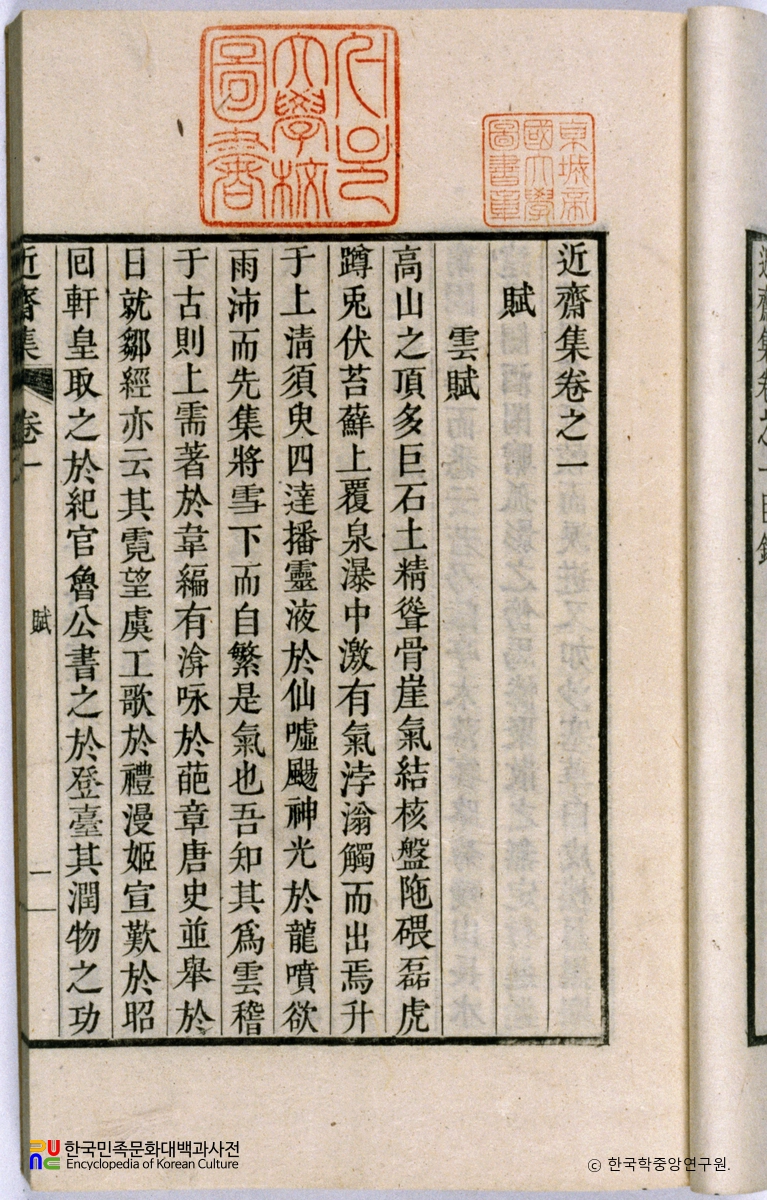 近齋集卷之一
賦
雲賦
高山之頂多巨石土精聳骨崖氣結核盤陁碨磊虎
蹲兎伏苔蘚上覆泉瀑中激有氣浡滃觸而出焉升
于上淸須臾四達播靈液於仙噓颺神光於龍噴欲
雨沛而先集將雪下而自繁是氣也吾知其爲雲稽
于古則上需著於韋編有渰咏於葩章唐史並舉於
日就鄒經亦云其霓望虞工歌於禮漫姬宣歎於昭
回軒皇取之於紀官魯公書之於登臺其潤物之功
近齋集 卷一 賦 一
大學校
圖書
東城帝
國大學
圖書章
近齋集卷之一目錄
한국민족문화대백과사전
Encyclopedia of Korean Culture
© 한국학중앙연구원.